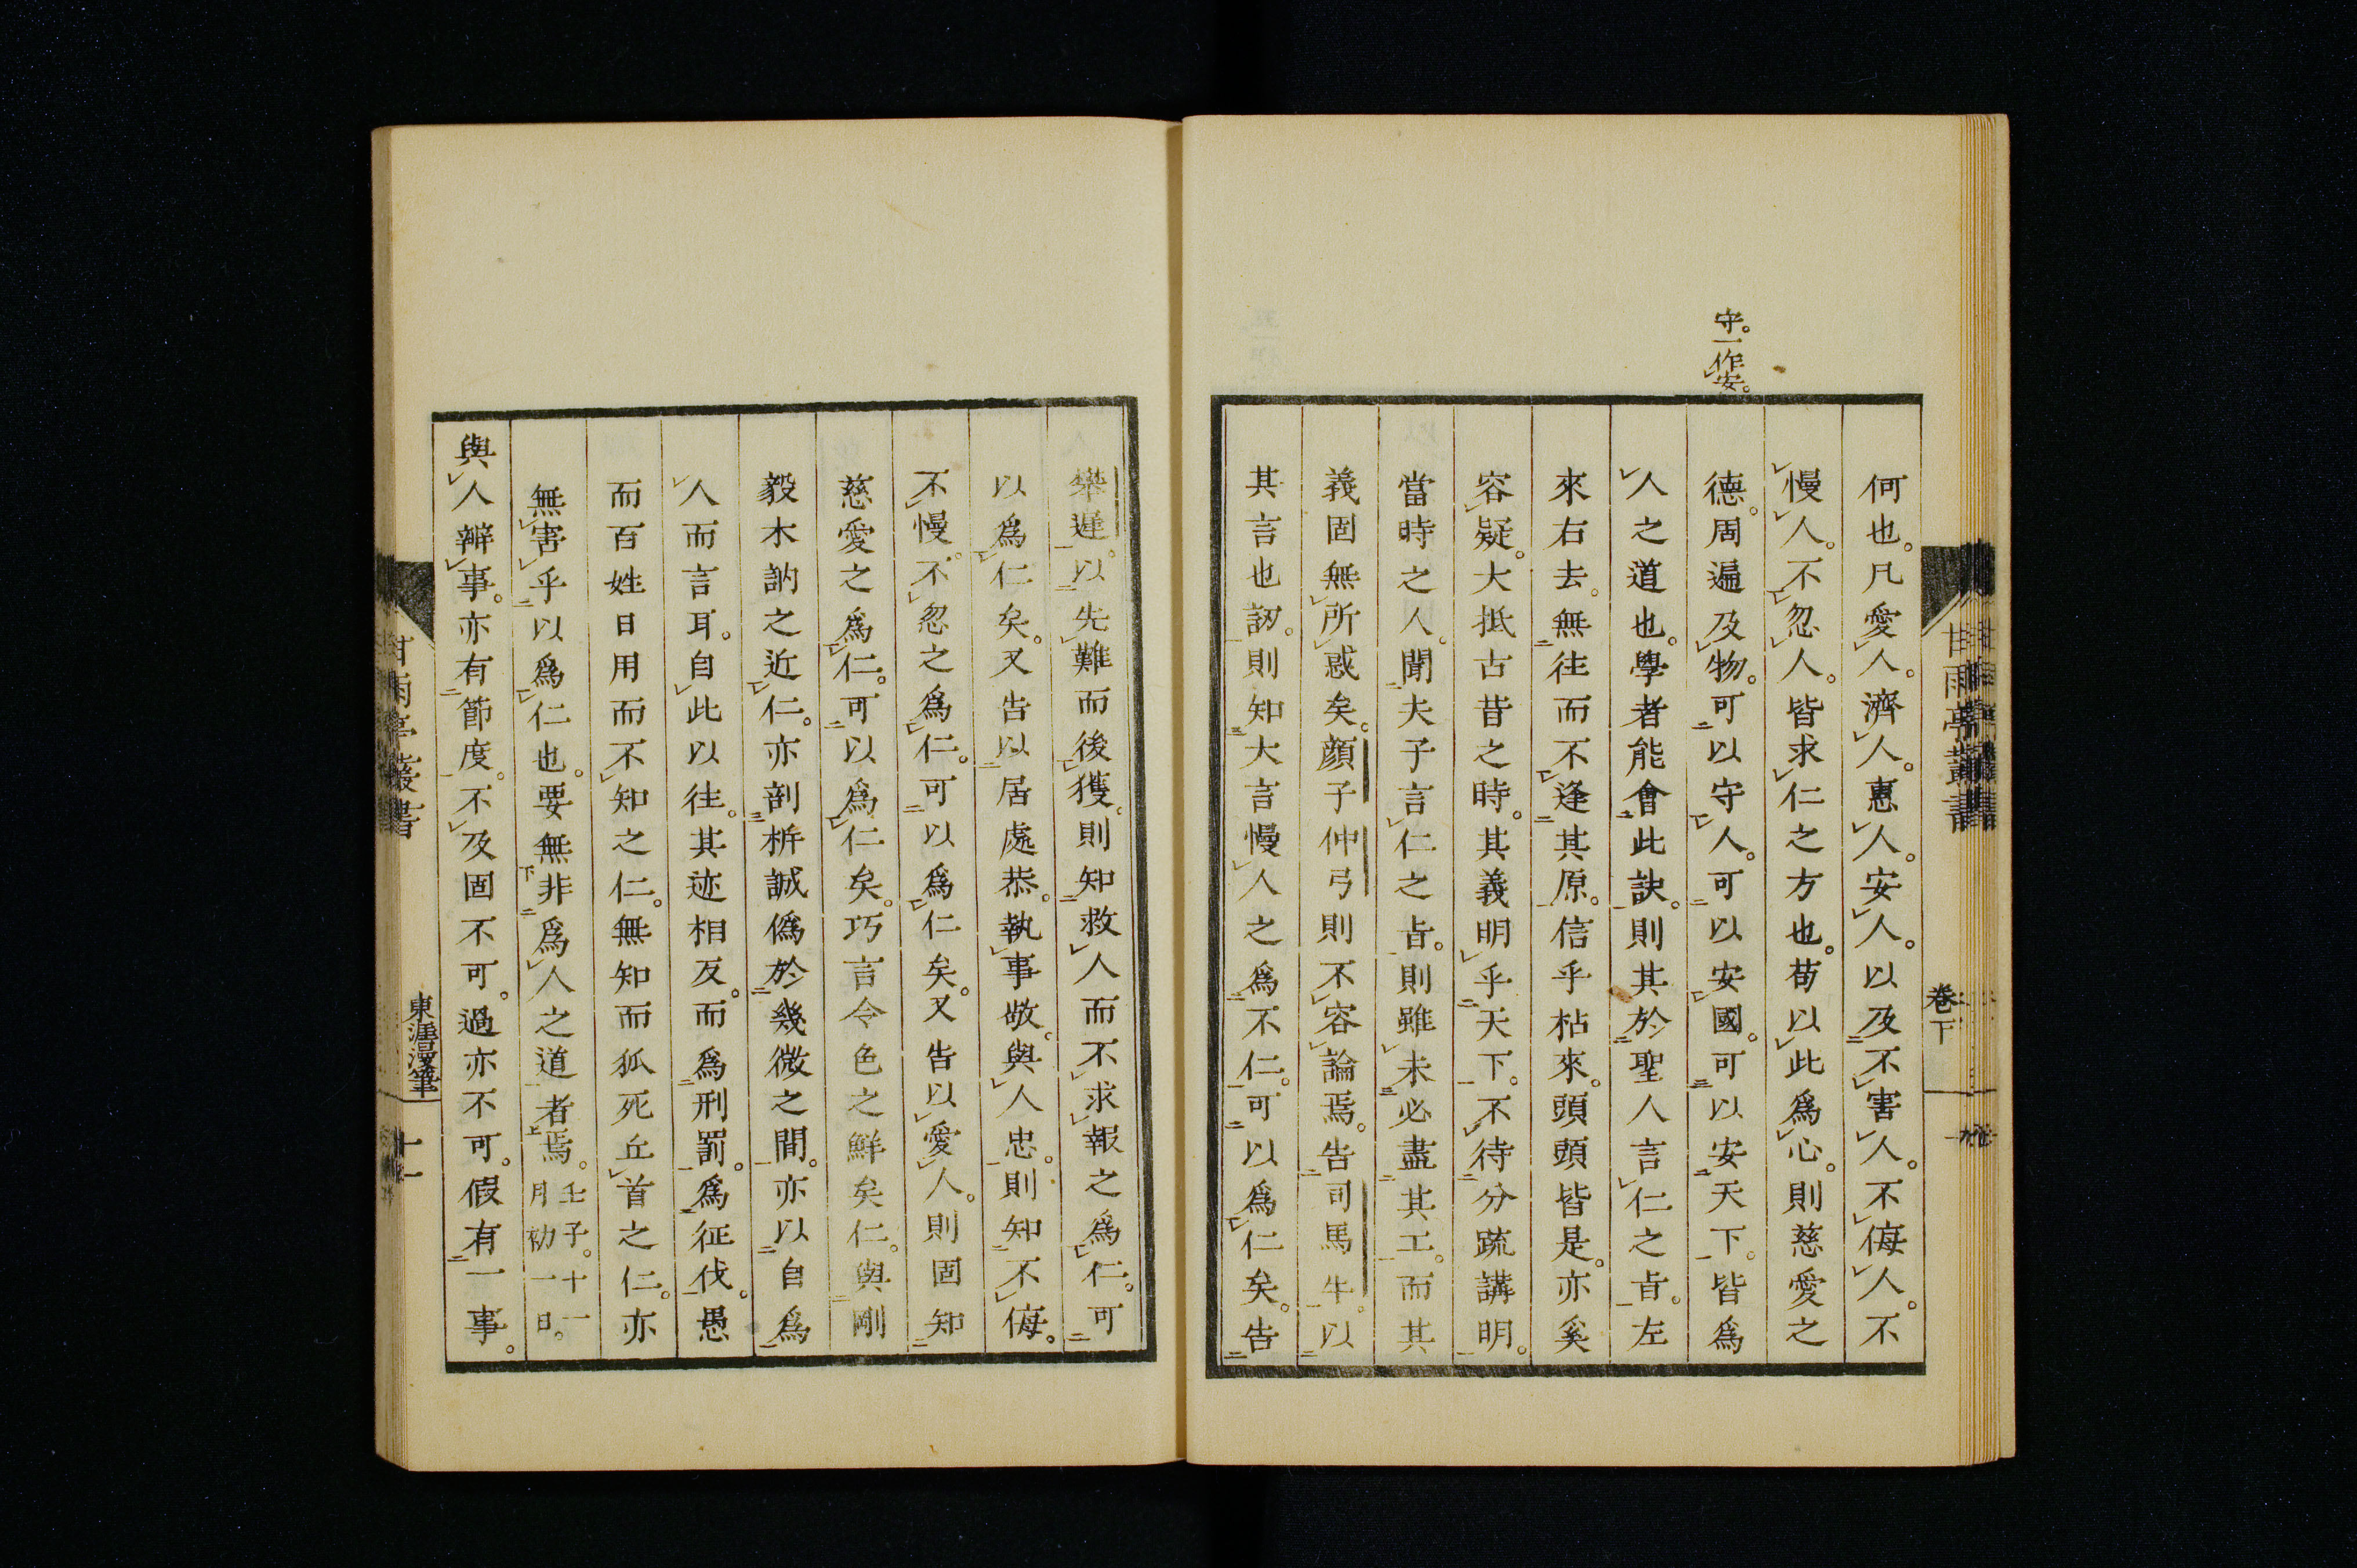 守。一作安。
何也。凡愛人。濟人。惠人。安人。以及不害人。不侮人。不
慢人。不忽人。皆求仁之方也。苟以此爲心。則慈愛之
德。周遍及物。可以守人。可以安國。可以安天下。皆爲
人之道也。學者能會此訣。則其於聖人言仁之旨。左
來右去。無往而不逢其原。信乎枯來。頭頭皆是。亦奚
容疑。大抵古昔之時。其義明乎天下。不待分疏講明。
當時之人。聞夫子言仁之旨。則雖未必盡其工。而其
義固無所惑矣。顔子仲弓則不容論焉。告司馬牛。以
其言也訒。則知大言慢人之爲不仁。可以爲仁矣。告
甘雨亭叢書
卷下
樊遲。以先難而後獲。則知救人而不求報之爲仁。可
以爲仁矣。又告以居處恭。執事敬。與人忠。則知不侮。
不慢。不忽之爲仁。可以爲仁矣。又告以愛人。則固知
慈愛之爲仁。可以爲仁矣。巧言令色之鮮矣仁。與剛
毅木訥之近仁。亦剖析誠僞於幾微之間。亦以自爲
人而言耳。自此以往。其迹相反。而爲刑罰。爲征伐。愚
而百姓日用而不知之仁。無知而狐死丘首之仁。亦
無害乎以爲仁也。要無非爲人之道者焉。壬子。十一月初一日。
與人辯事。亦有節度。不及固不可。過亦不可。假有一事。
甘雨亭叢書
東涯漫筆
十一